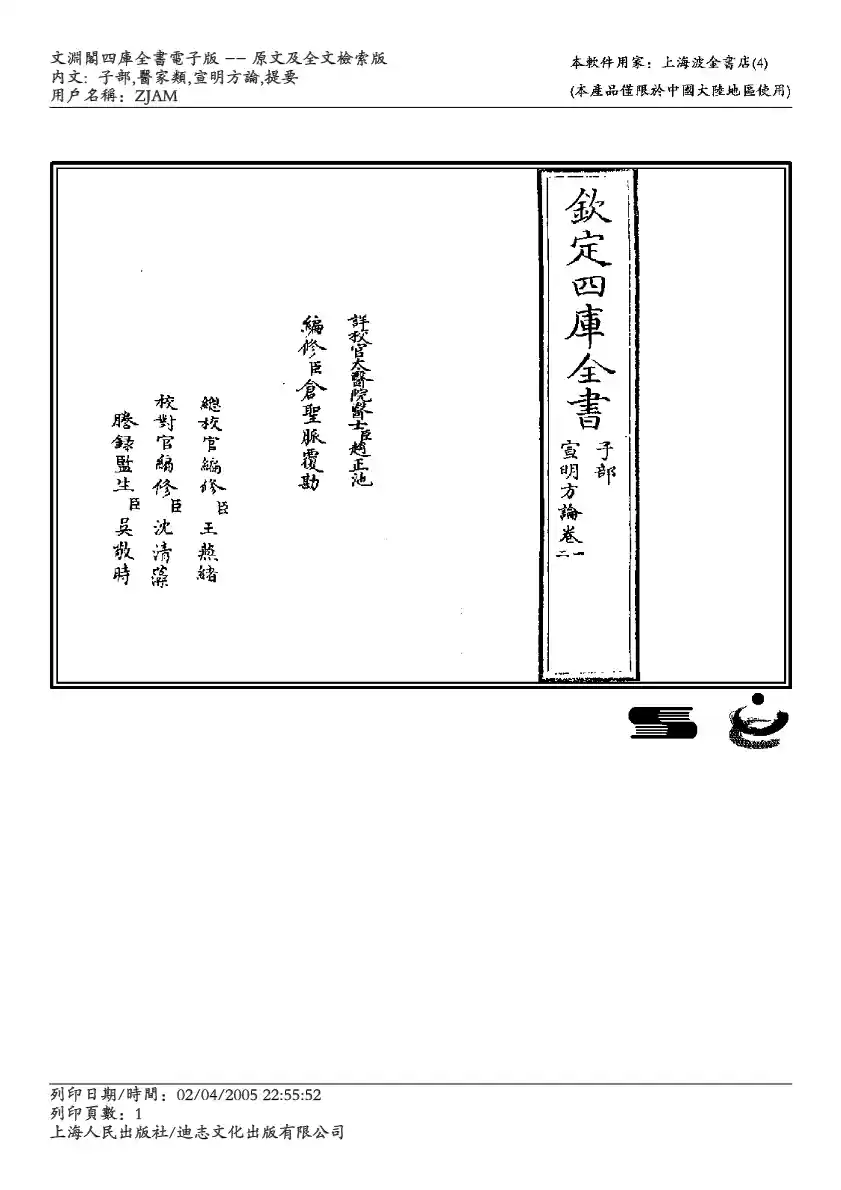 文淵閣四庫全書電子版 -- 原文及全文檢索版
內文: 子部,醫家類,宣明方論,提要
用戶名稱: ZJAM
本軟件用家: 上海波金書店(4)
(本產品僅限於中國大陸地區使用)
欽定四庫全書
子部
宣明方論卷一
二
詳校官太醫院醫士臣趙正池
編修臣倉聖脈覆勘
總校官編修臣王燕緒
校對官編修臣沈清藻
謄錄監生臣吳敬時
列印日期/時間: 02/04/2005 22:55:52
列印頁數: 1
上海人民出版社/迪志文化出版有限公司